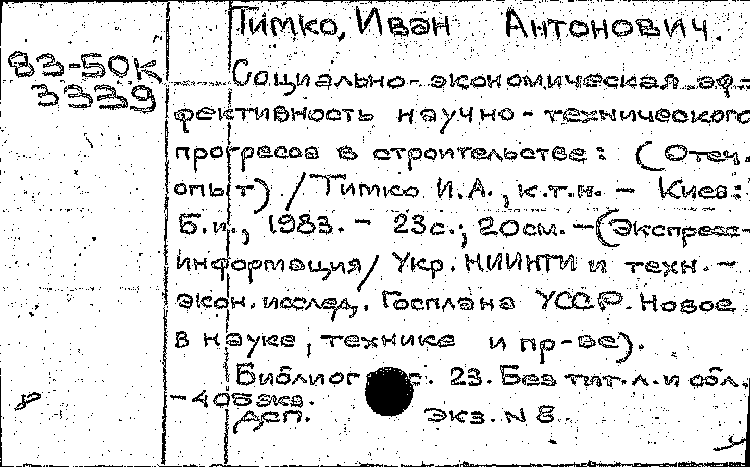 Тимко, Иван Антонович.
83-50К
3339
Социально-экономическая эф-
фективность научно-технического
прогресса в строительстве: (Отеч.
опыт) / Тимко И.А., к.т.н. - Киев:
Б.и., 1983. - 23с.; 20см. - (Экспресс-
информация/ Укр. НИИНТИ и техн.-
экон. исслед. Госплана УССР. Новое
в науке, технике и пр-ве).
23. Без тит.л. и обл.
экз.
ДСП. Экз. N 8.